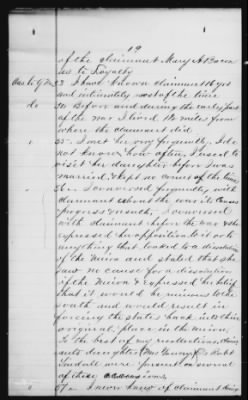 19
of the claimant Mary A Bacon
as to Loyalty
I have known claimant 16 yrs
and intimately most of the time
Do 34 Before and during the early part
of the war I lived 12 miles from
where the claimant did
35 I met her very frequently, I do
not know how often, I used to
visit her daughter before I was
married, I kept no count of the times
36 I conversed frequently with
claimant about the war its causes
progress & results, I conversed
with claimant before the war & she
expressed her opposition to it or to
anything that looked to a dissolution
of the Union and stated that she
saw no cause for a dissolution
of the Union & expressed her belief
that it would be ruinous to the
south and would result in
forcing the states back into their
original place in the Union.
To the best of my recollection,
daughter Mrs & Robt
Tindall were present on several
of these occasions
37 I never knew of claimant